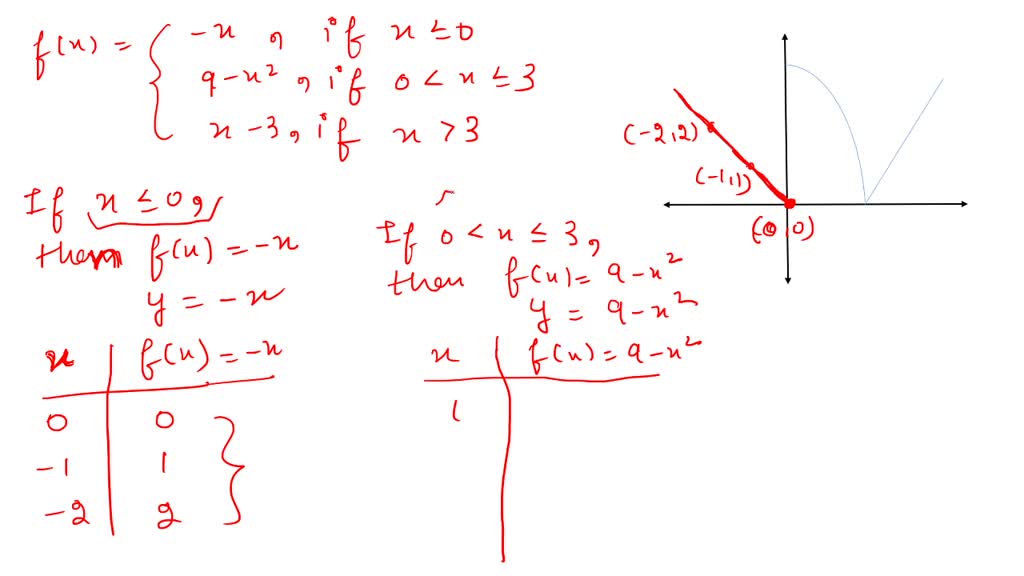 f(x) = { -x , if x ≤ 0
9-x² , if 0 < x ≤ 3
x-3 , if x > 3
If x ≤ 0,
then f(x) = -x
y = -x
x | f(x) = -x
0 | 0
-1 | 1
-2 | 2
If 0 < x ≤ 3,
then f(x) = 9-x²
y = 9-x²
x | f(x) = 9-x²
1
(-2,2)
(-1,1)
(0,0)